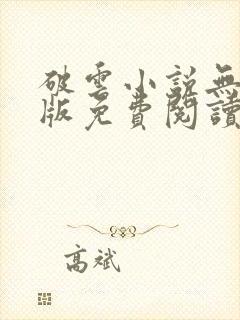 破雲小說無
版免費閱讀
高斌